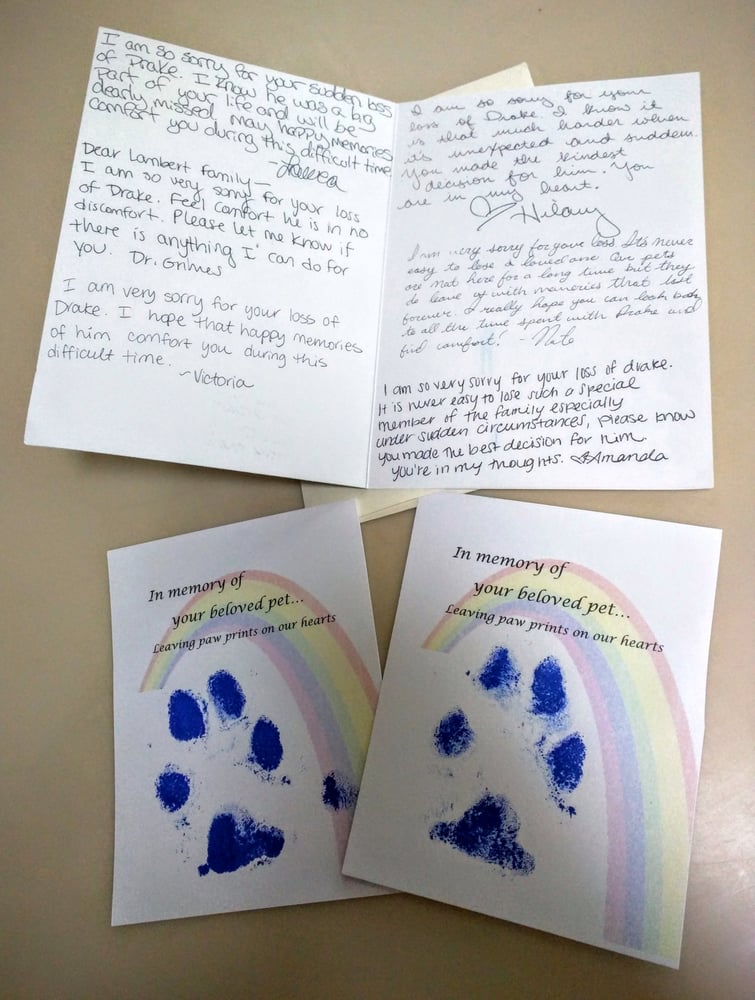 I am so sorry for your sudden loss
of Drake. I know he was a big
part of your life and will be
dearly missed. may happy memories
comfort you during this difficult time
Dear Lambert Family—
I am so very sorry for your loss
of Drake. Feel comfort he is in no
discomfort. Please let me know if
there is anything I can do for
you. Dr. Grimes
I am very sorry for your loss of
Drake. I hope that happy memories
of him comfort you during this
difficult time.
~Victoria
I am so sorry for your
loss of Drake. I know it
is that much harder when
it's unexpected and sudden.
You made the kindest
decision for him. You
are in my heart.
Hilary
I am very sorry for your loss It's never
easy to lose a loved one. Our pets
are not here for a long time but they
do leave us with memories that last
forever. I really hope you can look back
to all the time spent with Drake and
find comfort! - Nate
I am so very sorry for your loss of drake.
It is never easy to lose such a special
member of the family especially
under sudden circumstances, please know
you made the best decision for him.
you're in my thoughts. Amanda
In memory of
your beloved pet...
Leaving paw prints on our hearts
In memory of
your beloved pet...
Leaving paw prints on our hearts